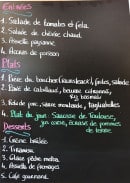 Entrées
1. Salade de tomates et feta
2. Salade de chèvre chaud
3. Assiette paysanne
4. de poisson
Plats
1. Pièce du boucher, frites, salade
2. de cabillaud, beurre citronné,
riz
3. de porc, sauce moutarde, tagliatelles
4. Plat du jour: Saucisse de Toulouse,
pommes
de terre
Desserts
1. Crème brûlée
2. Tiramisu
3. Glace pêche melba
4. Assiette de fromages
5. Café gourmand